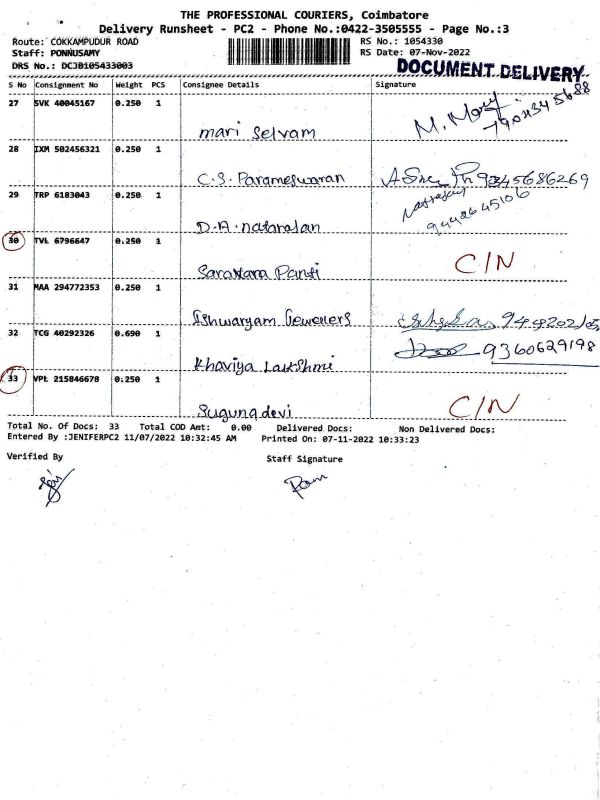 THE PROFESSIONAL COURIERS, Coimbatore
Delivery Runsheet - PC2 - Phone No.:0422-3505555 - Page No.:3
Route: COKKAMPUDUR ROAD
RS No.: 1054330
Staff: PONNUSAMY
RS Date: 07-Nov-2022
DRS No.: DCJB105433003
DOCUMENT DELIVERY
S No Consignment No Weight PCS Consignee Details Signature
27 SVK 40045167 0.250 1
mari Selvam
28 IXM 502456321 0.250 1
C.S. Parameswaran
29 TRP 6183043 0.250 1
9442645106
D.A. natarajan
30 TVL 6796647 0.250 1
C/N
31 MAA 294772353 0.250 1
Ishwaryam Jewellers
32 TCG 40292326 0.690 1
9360629198
Khaviya Lakshmi
33 VPL 215846678 0.250 1
Sugunadevi C/N
Total No. Of Docs: 33 Total COD Amt: 0.00 Delivered Docs: Non Delivered Docs:
Entered By :JENIFERPC2 11/07/2022 10:32:45 AM Printed On: 07-11-2022 10:33:23
Verified By Staff Signature
Ram